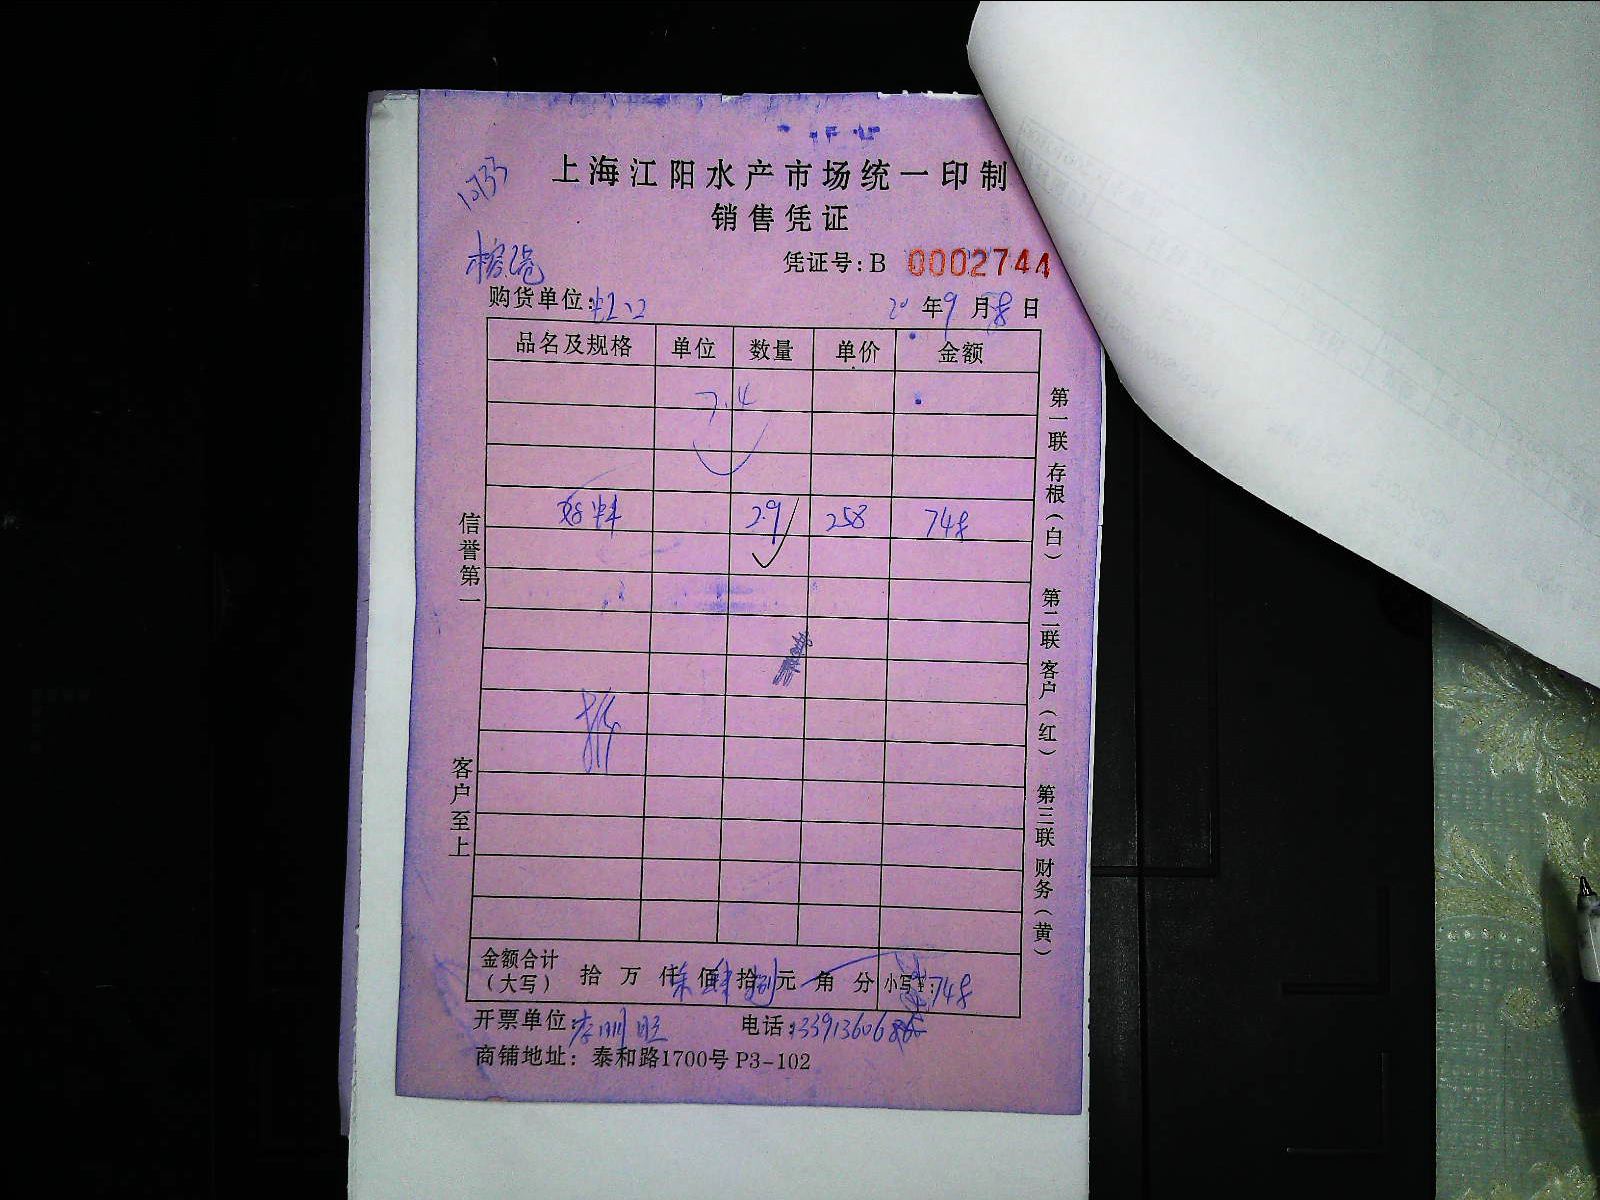 上海江阳水产市场统一印制
销售凭证
凭证号:B 0002744
购货单位:虹口 20 年 9 月 8 日
品名及规格 单位 数量 单价 金额
7.4
2.9 258 748
信誉第一
客户至上
第一联 存根（白） 第二联 客户（红） 第三联 财务（黄）
金额合计（大写） 拾 万 仟 柒 佰 肆 拾 捌 元 角 分 小写¥:748
开票单位: 电话:
商铺地址: 泰和路1700号 P3-102